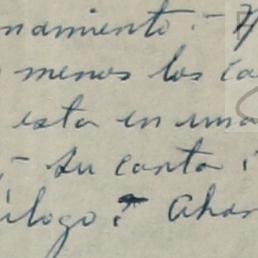 namiento. -
menos los ca
esta en una
- su carta
ílogo? Ahor